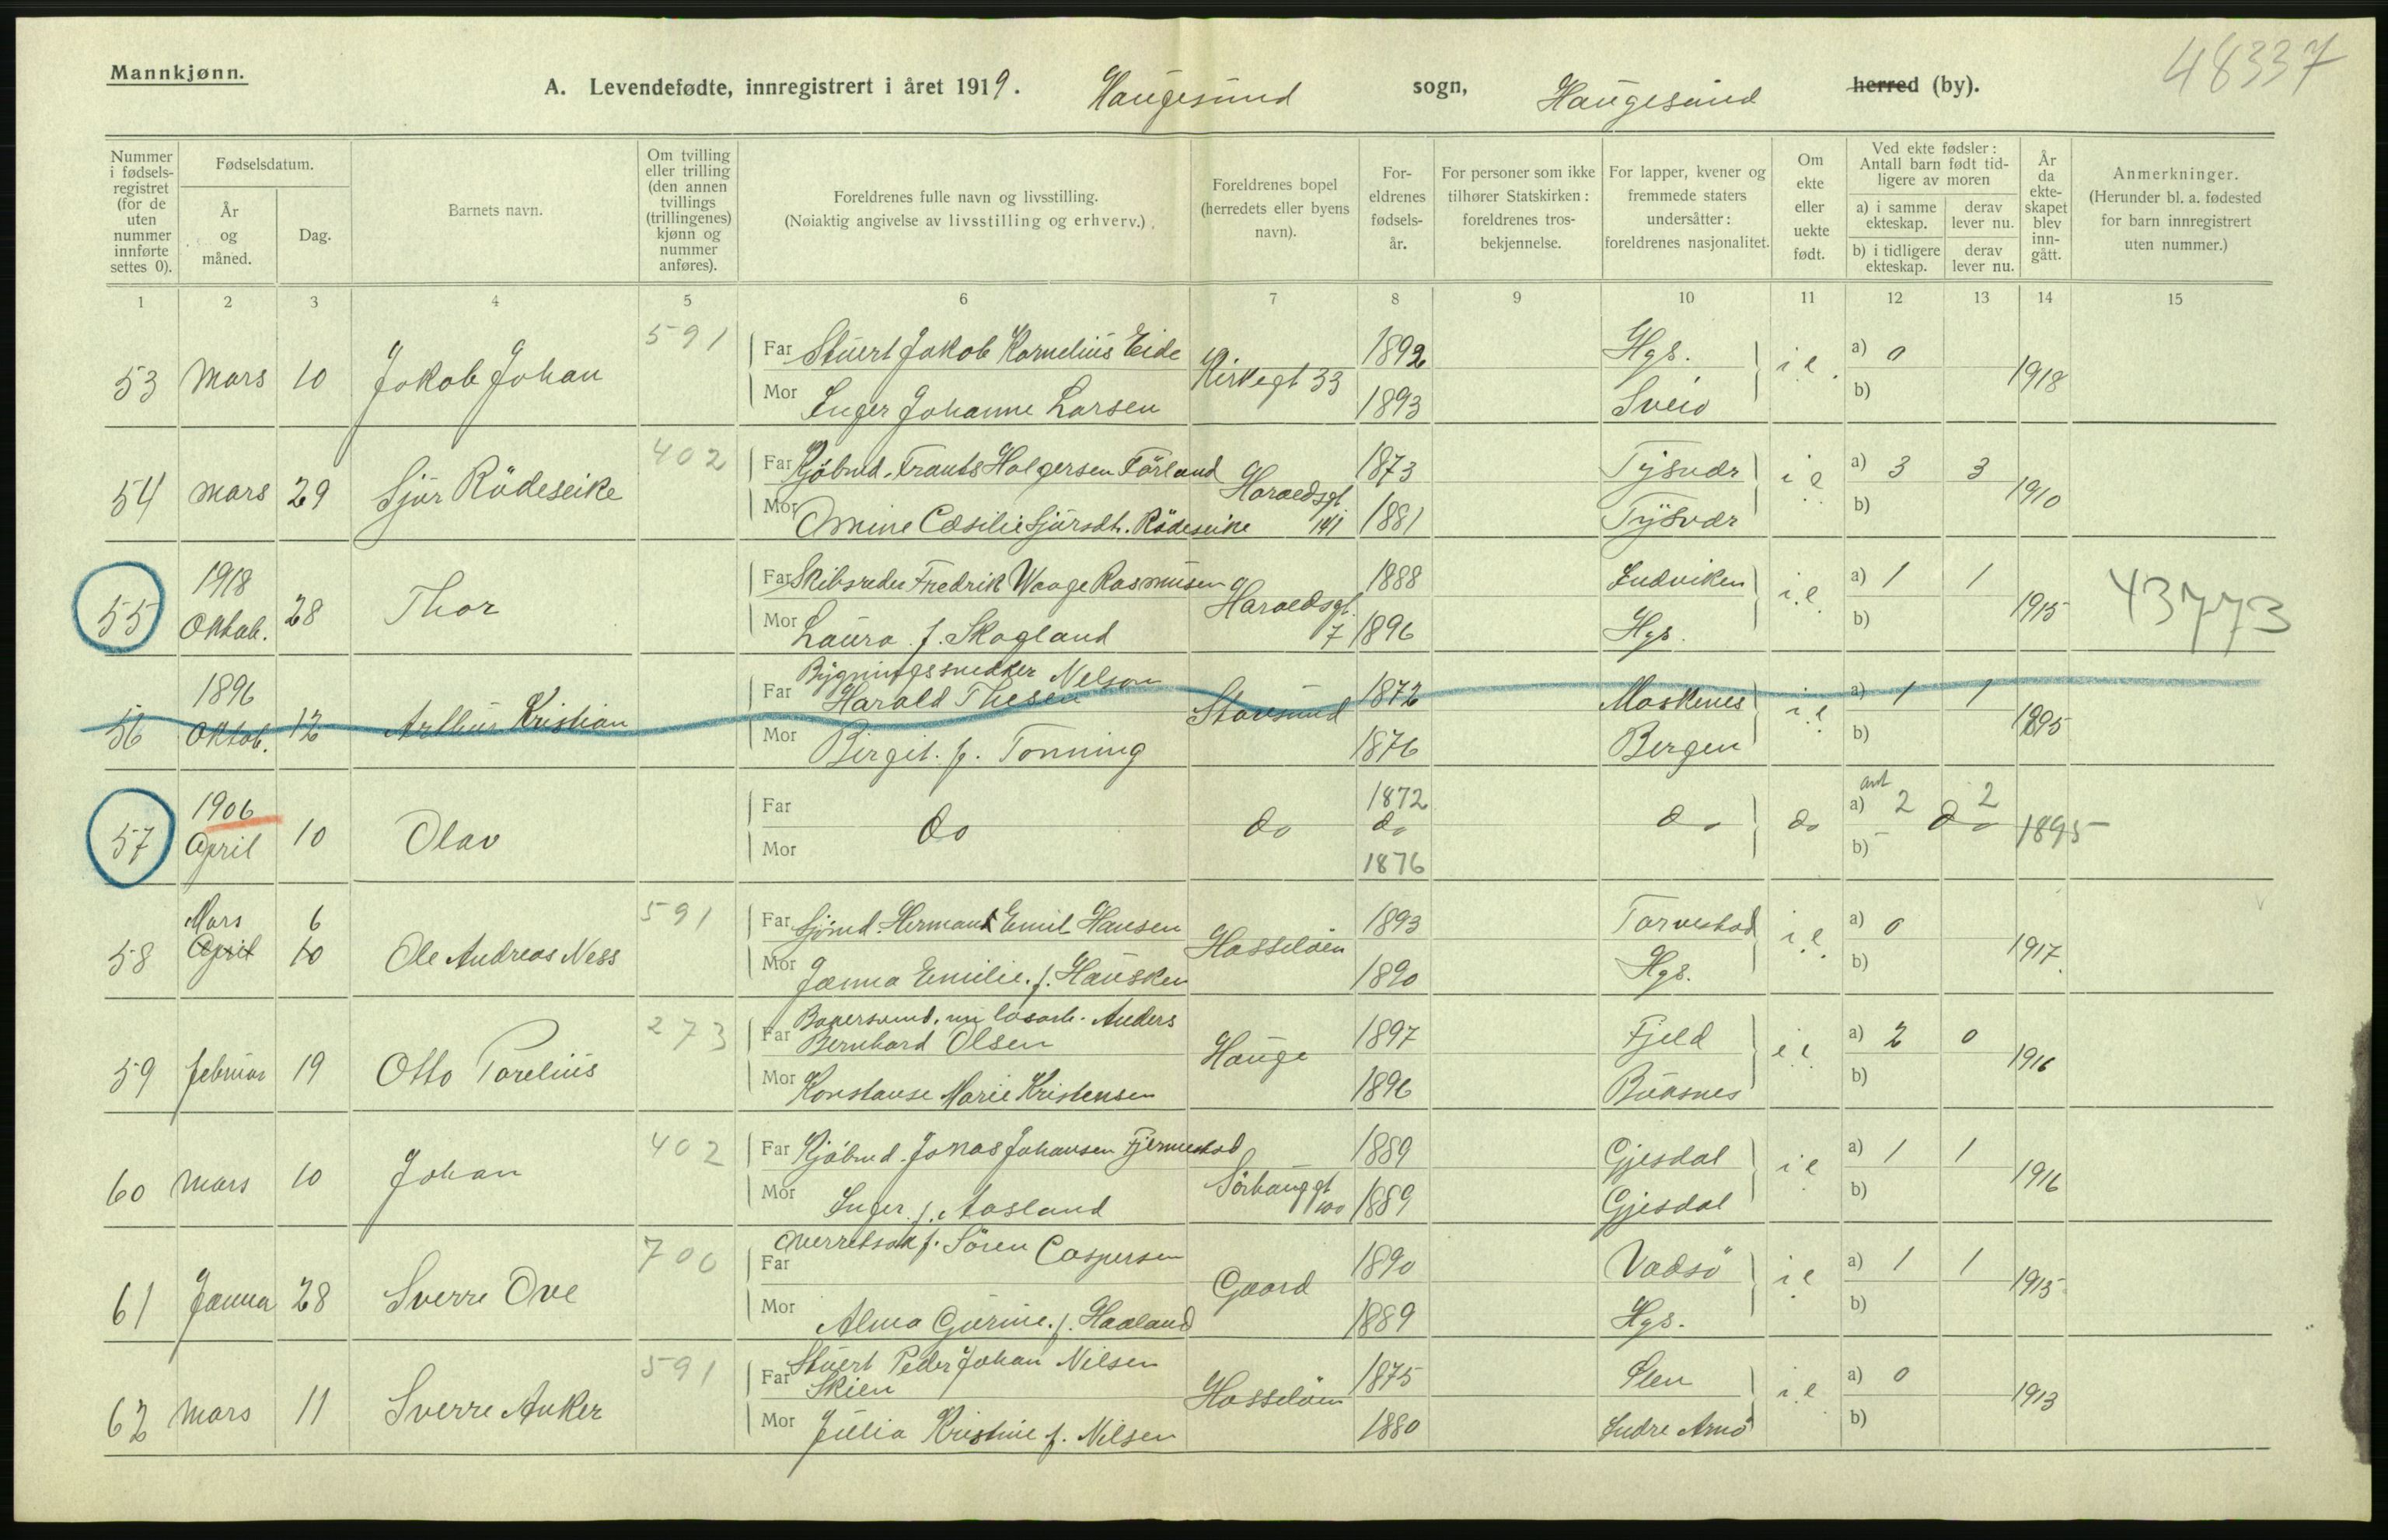 48337
Mannkjønn.
A. Levendefødte, innregistrert i året 1919. Haugesund sogn, Haugesund herred (by).
Nummer i fødsels-registret (for de uten nummer innførte settes 0).
Fødselsdatum.
År og måned.
Dag.
Barnets navn.
Om tvilling eller trilling (den annen tvillings (trillingenes) kjønn og nummer anføres).
Foreldrenes fulle navn og livsstilling.
(Nøiaktig angivelse av livsstilling og erhverv.)
Foreldrenes bopel (herredets eller byens navn).
For-eldrenes fødsels-år.
For personer som ikke tilhører Statskirken: foreldrenes tros-bekjennelse.
For lapper, kvener og fremmede staters undersåtter: foreldrenes nasjonalitet.
Om ekte eller uekte født.
Ved ekte fødsler: Antall barn født tid-ligere av moren
a) i samme ekteskap.
derav lever nu.
b) i tidligere ekteskap.
derav lever nu.
År da ekte-skapet blev inn-gått.
Anmerkninger.
(Herunder bl. a. fødested for barn innregistrert uten nummer.)
1 2 3 4 5 6 7 8 9 10 11 12 13 14 15
53 Mars 10 Jakob Johan 591 Far Stuert Jakob Kornelius Eide Kirkegt 33 1892 Hgs. i.e. a) 0 1918
Mor Inger Johanne Larsen 1893 Sveio b)
54 Mars 29 Sjur Rödeseike 402 Far Kjöbmd. Frants Holgersen Förland Haraldsgt. 141 1873 Tysvær i e a) 3 3 1910
Mor Amine Cæsilie Sjursdt. Rödeseike 1881 Tysvær b)
55 1918 Oktob. 28 Thor Far Skibsreder Fredrik Waage Rasmusen Haraldsgt. 7 1888 Indviken i.e. a) 1 1 1915 43773
Mor Laura f. Skogland 1896 Hgs. b)
56 1896 Oktob. 12 Arthur Kristian Far Bygningssnedker Nelson Harald Thesen Storesund 1872 Moskenes i.e a) 1 1 1895
Mor Birgit. f. Tonning 1876 Bergen b)
57 1906 April 10 Olav Far do do 1872 do do do ant a) 2 do 2 1895
Mor 1876 b) -
58 Mars 6 April 10 Ole Andreas Ness 591 Far Sjömd. Hermand Emil Hansen Hasselöen 1893 Torvestad i.e. a) 0 1917.
Mor Janna Emilie. f. Hausken 1890 Hgs. b)
59 februar 19 Otto Torelius 273 Far Anders Bernhard Olsen Hauge 1897 Fjeld i e a) 2 0 1916
Mor Konstanse Marie Kristensen 1896 Buksnes b)
60 Mars 10 Johan 402 Far Kjöbmd. Jonas Johansen Fjermestad Sörhauggt 100 1889 Gjesdal i e a) 1 1 1916
Mor Inger f. Aasland 1889 Gjesdal b)
61 Janua 28 Sverre Ove 700 Far Overretssakf. Sören Caspersen Gaard 1890 Vadsö i e a) 1 1 1915
Mor Alma Gurine. f. Haaland 1889 Hgs. b)
62 Mars 11 Sverre Anker 591 Far Stuert Peder Johan Nilsen Skien Hasselöen 1875 i.e a) 0 1913
Mor Julia Kristine f. Nilsen 1880 Indre Arnö b)